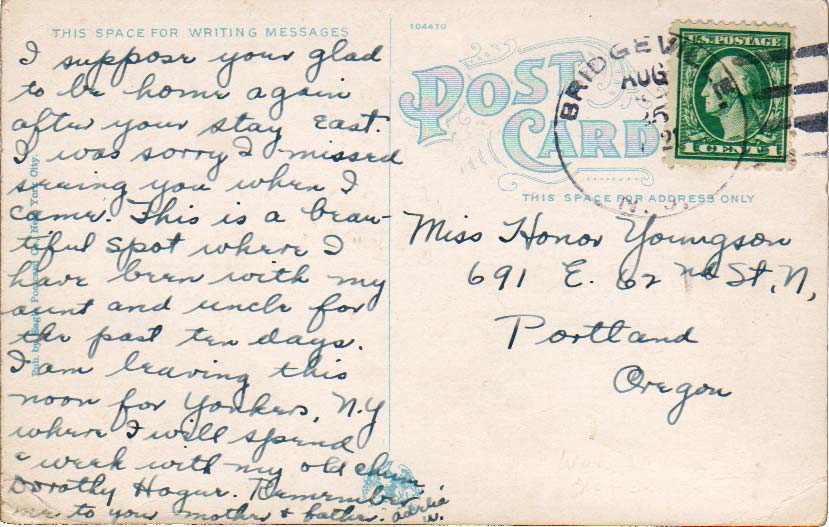 THIS SPACE FOR WRITING MESSAGES
I suppose your glad
to be home again
after your stay East.
I was sorry I missed
seeing you when I
came. This is a beau-
tiful spot where I
have been with my
aunt and uncle for
the past ten days.
I am leaving this
noon for Yonkers, N.Y
where I will spend
a week with my old chum
Dorothy Hague. Remember
me to your mother & father.
Pub. by Eagle Postcard Co., New York City.
104470
POST
CARD
BRIDGEW
AUG
25
N.J.
U.S. POSTAGE
1 CENT 1
THIS SPACE FOR ADDRESS ONLY
Miss Honor Youngson
691 E. 62nd St, N,
Portland
Oregon